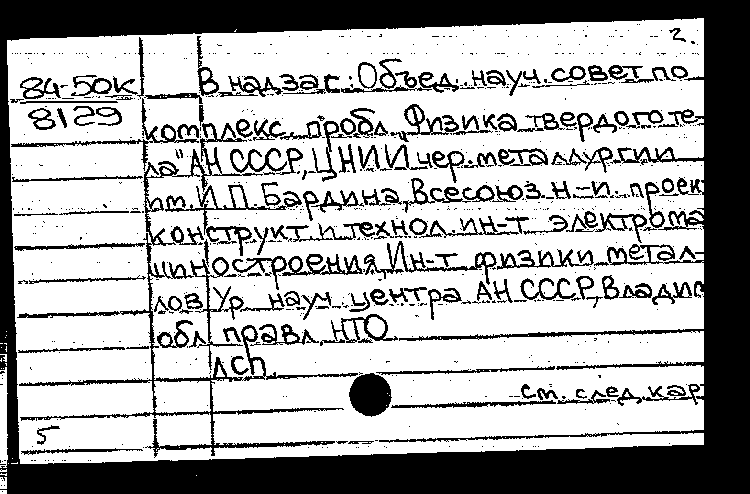 2.
84-50к В надзаг.: Объед. науч. совет по
8129
комплекс. пробл. „Физика твердого те-
ла" АН СССР, ЦНИИ чер. металлургии
им. И.П. Бардина, Всесоюз. н.-и. проек
конструкт. и технол. ин-т электрома
шиностроения, Ин-т физики метал-
лов Ур. науч. центра АН СССР, Владим
обл. правл. НТО
ЛСП.
см. след. кар
5